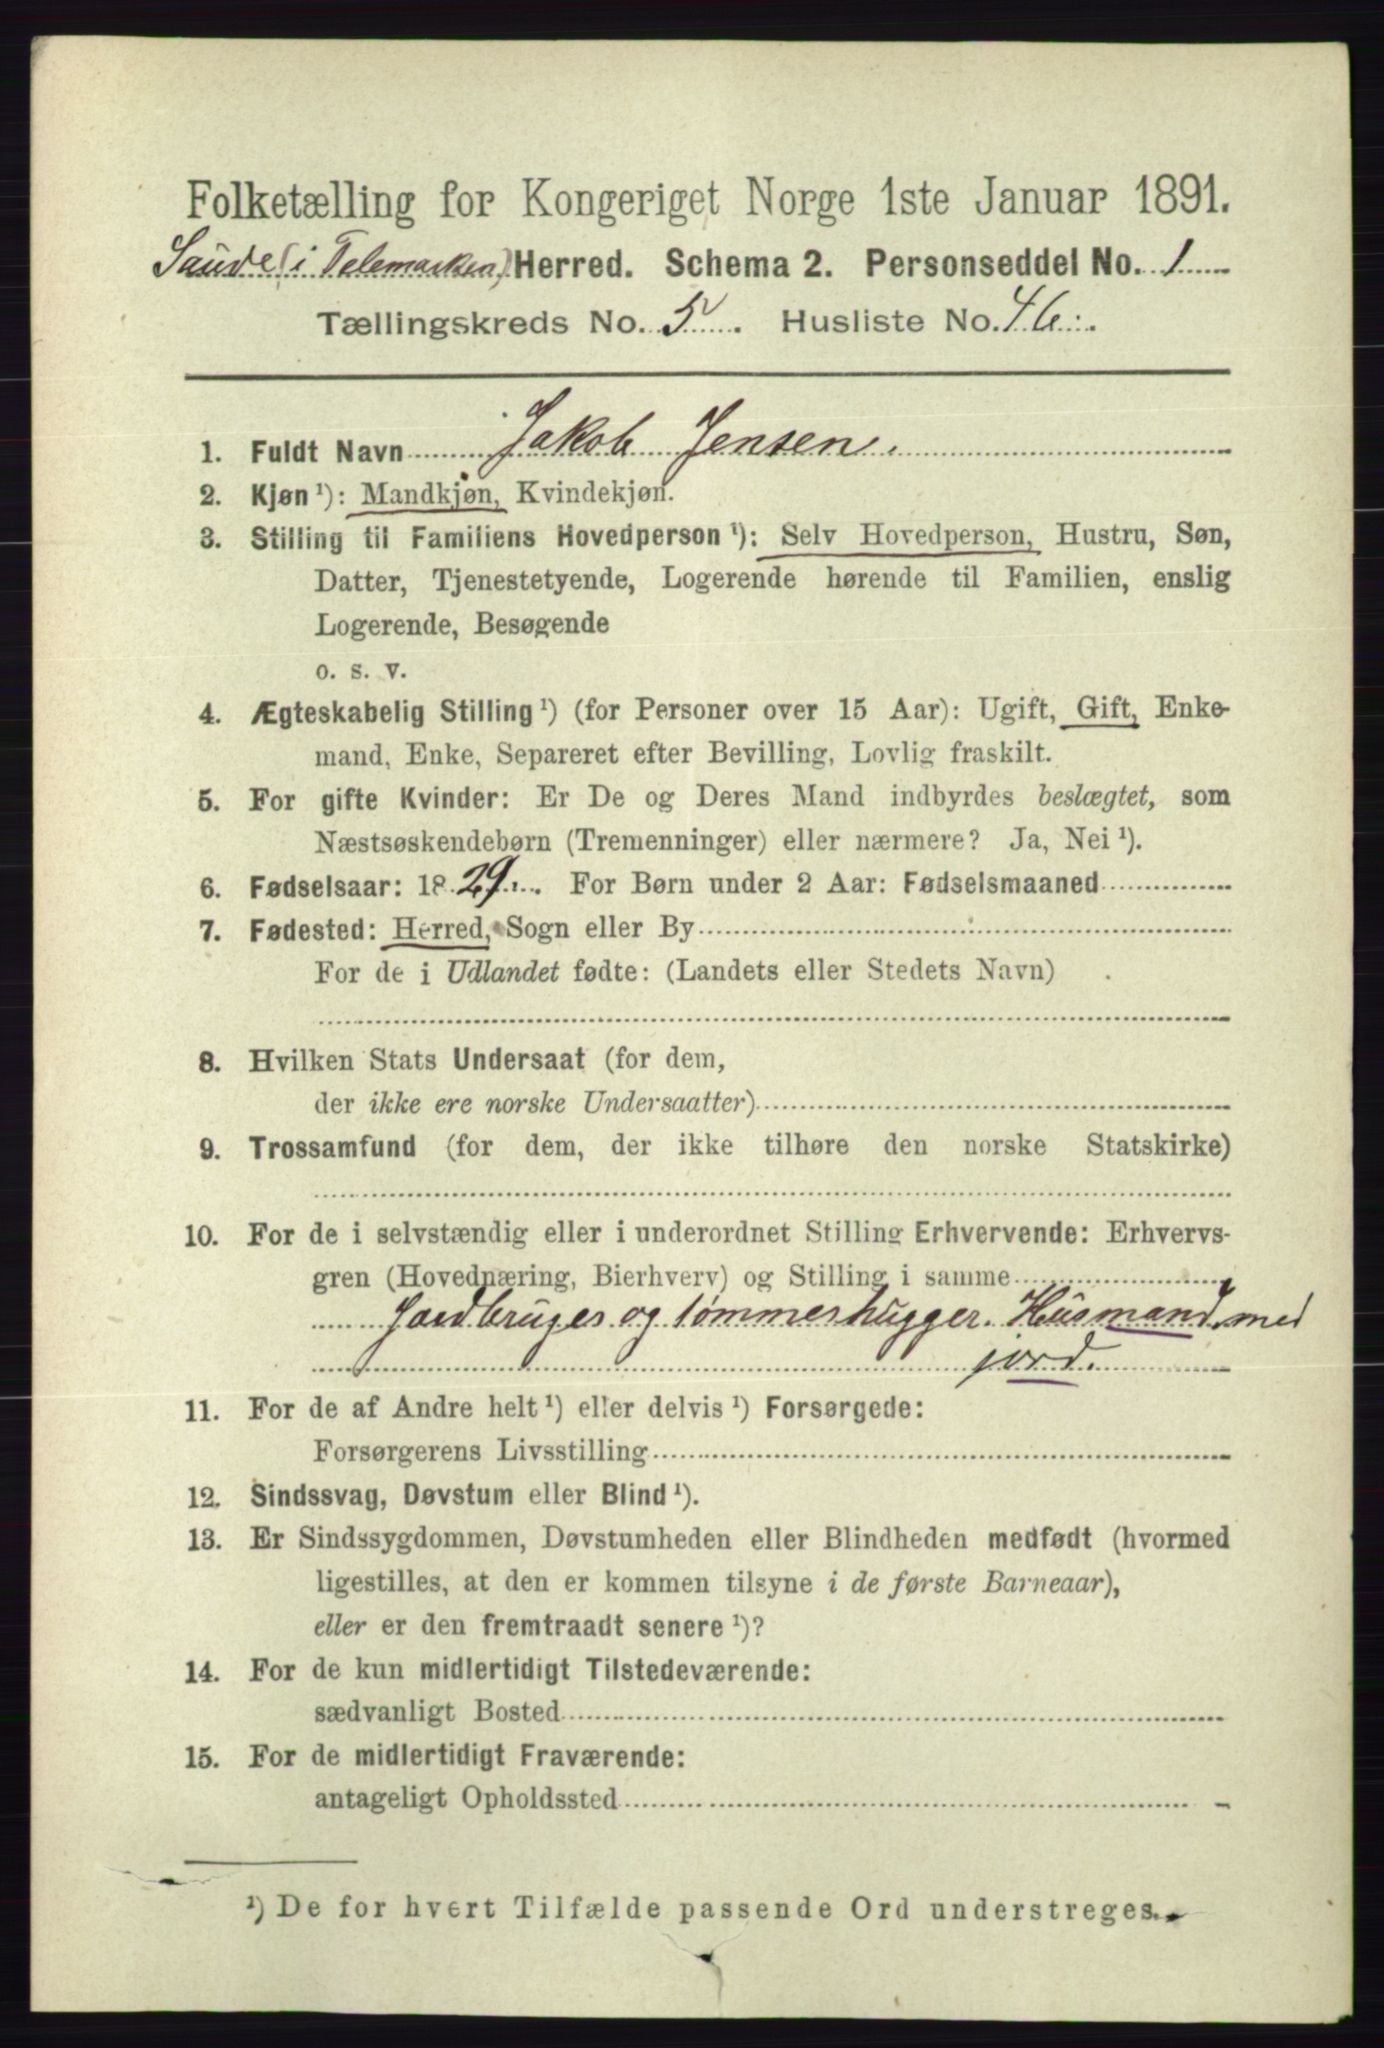 Folketælling for Kongeriget Norge 1ste Januar 1891.
Saude (i Telemarken) Herred. Schema 2. Personseddel No. 1
Tællingskreds No. 5. Husliste No. 46.
1. Fuldt Navn Jakob Jensen.
2. Kjøn ¹): Mandkjøn, Kvindekjøn.
3. Stilling til Familiens Hovedperson ¹): Selv Hovedperson, Hustru, Søn,
Datter, Tjenestetyende, Logerende hørende til Familien, enslig
Logerende, Besøgende
o. s. v.
4. Ægteskabelig Stilling ¹) (for Personer over 15 Aar): Ugift, Gift, Enke-
mand, Enke, Separeret efter Bevilling, Lovlig fraskilt.
5. For gifte Kvinder: Er De og Deres Mand indbyrdes beslægtet, som
Næstsøskendebørn (Tremenninger) eller nærmere? Ja, Nei ¹).
6. Fødselsaar: 1829. For Børn under 2 Aar: Fødselsmaaned
7. Fødested: Herred, Sogn eller By
For de i Udlandet fødte: (Landets eller Stedets Navn)
8. Hvilken Stats Undersaat (for dem,
der ikke ere norske Undersaatter)
9. Trossamfund (for dem, der ikke tilhøre den norske Statskirke)
10. For de i selvstændig eller i underordnet Stilling Erhvervende: Erhvervs-
gren (Hovednæring, Bierhverv) og Stilling i samme
Jordbruger og tømmerhugger. Husmand med
jord.
11. For de af Andre helt ¹) eller delvis ¹) Forsørgede:
Forsørgerens Livsstilling
12. Sindssvag, Døvstum eller Blind ¹).
13. Er Sindssygdommen, Døvstumheden eller Blindheden medfødt (hvormed
ligestilles, at den er kommen tilsyne i de første Barneaar),
eller er den fremtraadt senere ¹)?
14. For de kun midlertidigt Tilstedeværende:
sædvanligt Bosted
15. For de midlertidigt Fraværende:
antageligt Opholdssted
¹) De for hvert Tilfælde passende Ord understreges.